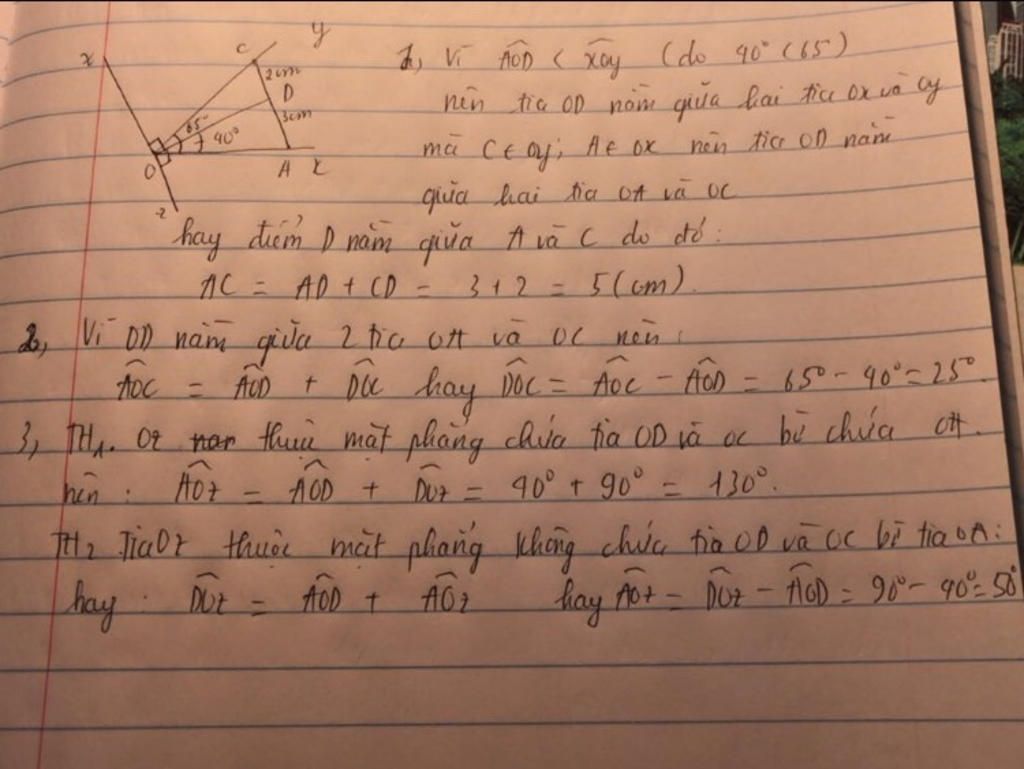 x
C
y
2cm
D
3cm
65°
40°
O
A
x
z
1, Vì AÔD < xÔy (do 40° < 65°)
nên tia OD nằm giữa hai tia Ox và Oy
mà C ∈ Oy; A ∈ Ox nên tia OD nằm
giữa hai tia OA và OC
hay điểm D nằm giữa A và C do đó:
AC = AD + CD = 3 + 2 = 5 (cm).
2, Vì OD nằm giữa 2 tia OA và OC nên:
AÔC = AÔD + DÔC hay DÔC = AÔC - AÔD = 65° - 40° = 25°.
3, TH1. Oz thuộc mặt phẳng chứa tia OD và OC bờ chứa OA.
nên : AÔz = AÔD + DÔz = 40° + 90° = 130°.
TH2 Tia Oz thuộc mặt phẳng không chứa tia OD và OC bờ tia OA:
hay : DÔz = AÔD + AÔz hay AÔz = DÔz - AÔD = 90° - 40° = 50°